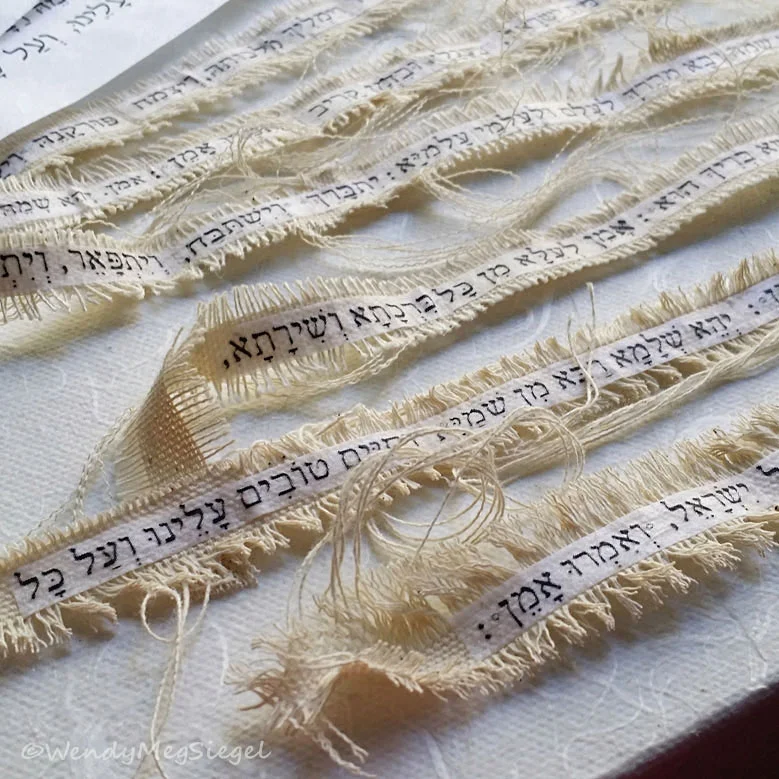 עָלֵינוּ, וְעַל
מלכותה ויצמח פורקנה
קריב אמן : אמן. יהא שמה
רבא מברך לעלם ולעלמי עלמיא : יִתְבָּרַךְ וְיִשְׁתַּבַּח, וְיִתְפָּאַר, וְיִתְ
בריך הוא : אָמֵן לעלא מן כָּל בִּרְכָתָא וְשִׁירָתָא,
יְהֵא שְׁלָמָא רַבָּא מִן שְׁמַיָּא וְחַיִּים טוֹבִים עָלֵינוּ וְעַל כָּל
יִשְׂרָאֵל, וְאִמְרוּ אָמֵן :
©WendyMegSiegel